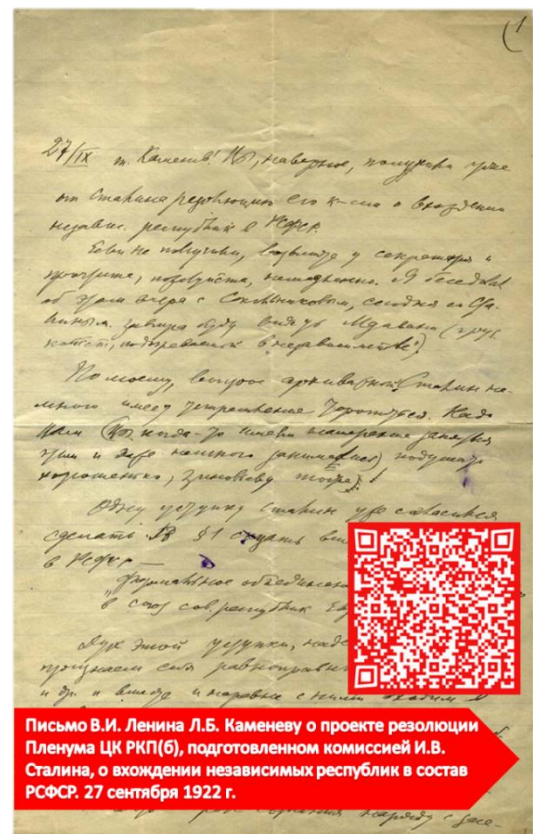 (1
27/IX т. Каменев! Вы, наверное, получили уже
от Сталина резолюцию его к-сии о вхождении
независ. республик в РСФСР.
Если не получили, возьмите у секретаря и
прочтите, пожалуйста, немедленно. Я беседовал
об этом вчера с Сокольниковым, сегодня со Ста-
линым. Завтра буду видеть Мдивани (груз.
коммунист, подозреваемый в „независимстве").
По-моему, вопрос архиважный. Сталин не-
много имеет устремление торопиться. Надо
Вам (Вы когда-то имели намерение заняться
этим и даже немного занимались) подумать
хорошенько; Зиновьеву тоже.
Одну уступку Сталин уже согласился
сделать. В § 1 сказать
в РСФСР —
„Формальное объединение
в союз сов. республик
Дух этой уступки,
признаем себя равноправными
и др. и вместе и наравне с ними входим в
Письмо В.И. Ленина Л.Б. Каменеву о проекте резолюции
Пленума ЦК РКП(б), подготовленном комиссией И.В.
Сталина, о вхождении независимых республик в состав
РСФСР. 27 сентября 1922 г.